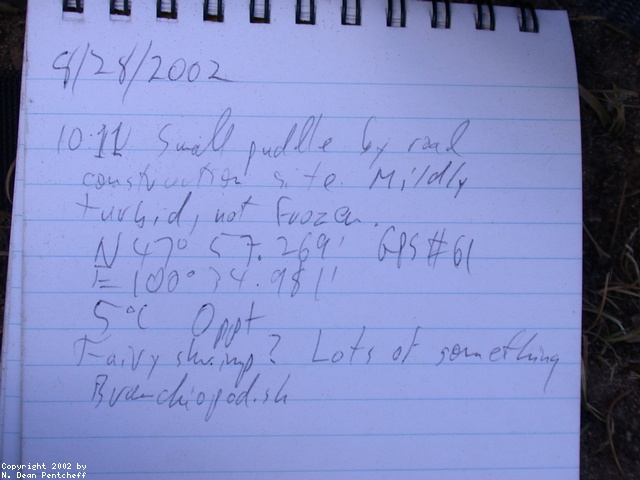 8/28/2002
10:11 Small puddle by road
construction site. Mildly
turbid, not frozen.
N 47° 57.269' GPS #61
E 100° 34.981'
5°C 0ppt
Fairy shrimp? Lots of something
Branchiopod.sh
Copyright 2002 by
N. Dean Pentcheff